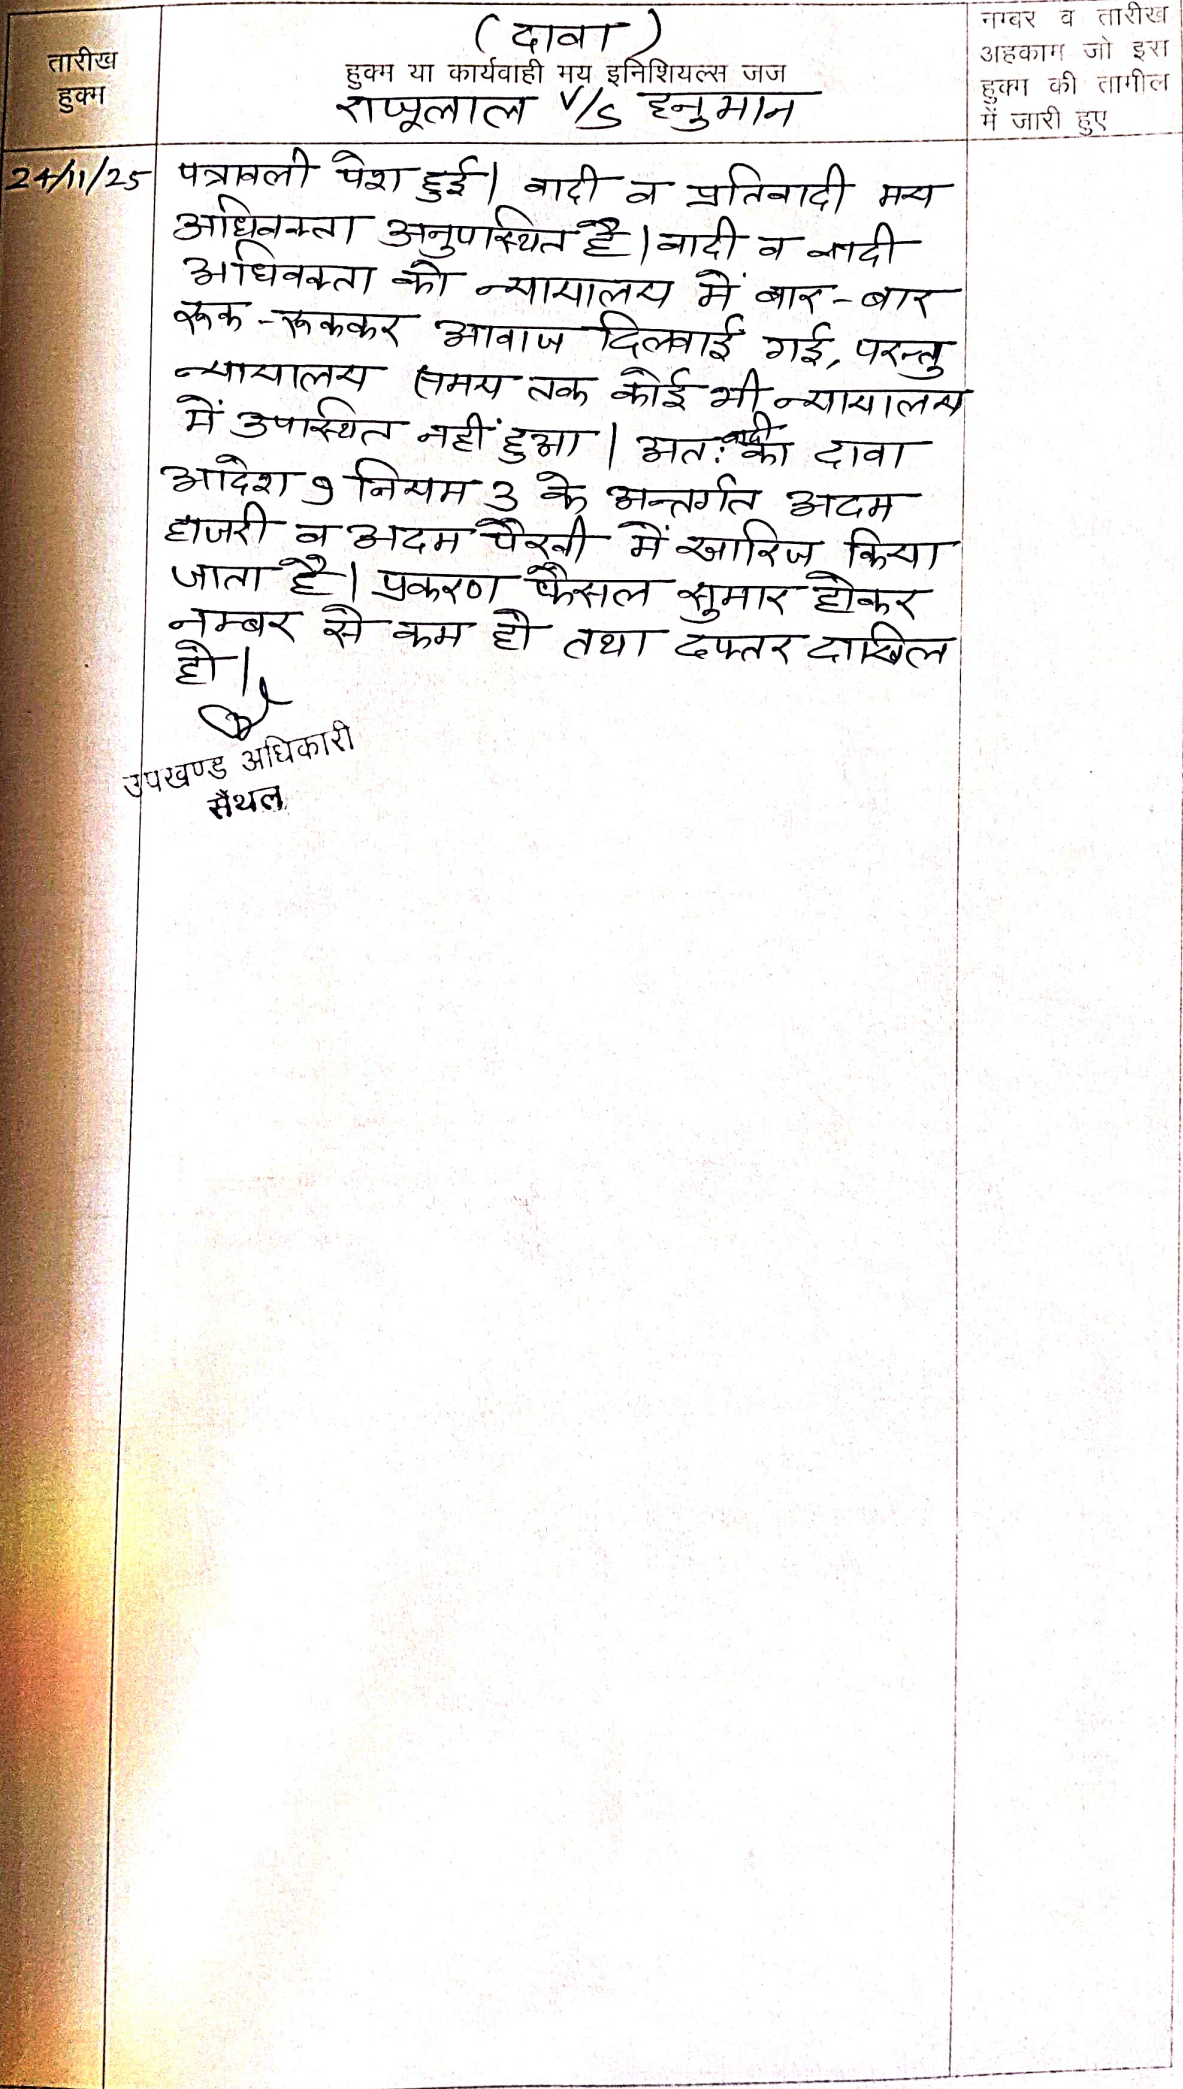 (दावा)
तारीख
हुक्म
हुक्म या कार्यवाही मय इनिशियल्स जज
राजूलाल V/S हनुमान
नम्बर व तारीख
अहकाम जो इस
हुक्म की तामील
में जारी हुए
24/11/25
पत्रावली पेश हुई। वादी व प्रतिवादी मय
अधिवक्ता अनुपस्थित है। वादी व वादी
अधिवक्ता को न्यायालय में बार-बार
रूक-रूककर आवाज दिलवाई गई, परन्तु
न्यायालय समय तक कोई भी न्यायालय
में उपस्थित नहीं हुआ। अत: वादी का दावा
आदेश 9 नियम 3 के अन्तर्गत अदम
हाजरी व अदम पैरवी में खारिज किया
जाता है। प्रकरण फैसल सुमार होकर
नम्बर से कम हो तथा दफ्तर दाखिल
हो।
उपखण्ड अधिकारी
सैंथल